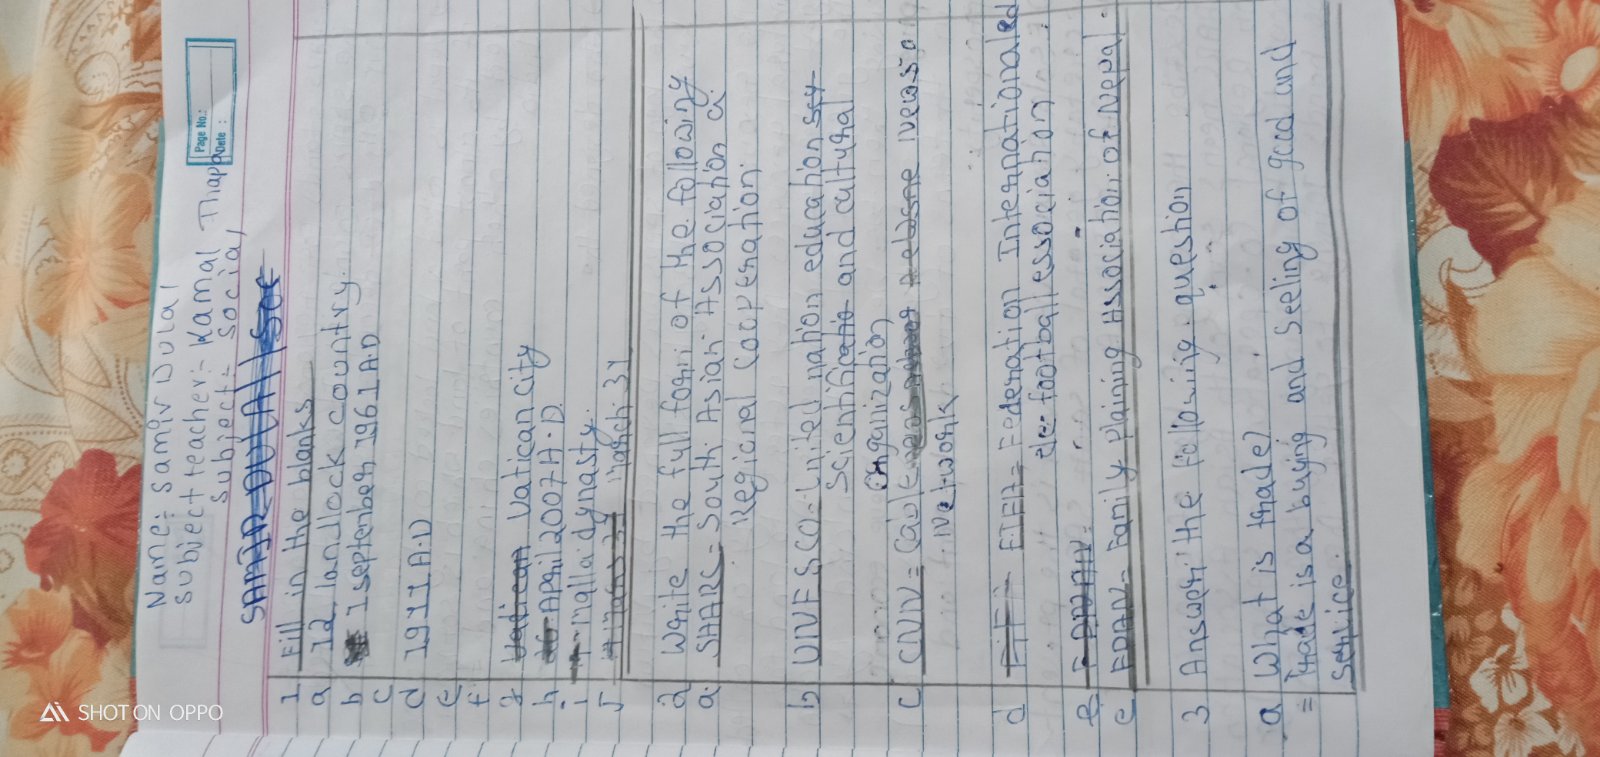 Page No.:
Date :
Name:- Samjiv Dulal
Subject teacher:- Kamal Thapa
Subject:- Social
1 Fill in the blanks
a 12 landlock country.
b 1 September 1961 A.D
c
d 1911 A.D
e
f
g Vatican city
h April 2007 A.D.
i malla dynasty.
j march 31
2 Write the full form of the following
a. SAARC = South Asian Association
Regional Cooperation.
b UNESCO = United nation education
Scientific and cultural
Organization
c CNN = Cable
Network
d FIFA = Federation International
football essociation
e FPAN = Family Planing Association of Nepal.
3 Answer the following question
a What is trade?
= Trade is a buying and seeling of good and
Service.
SHOT ON OPPO